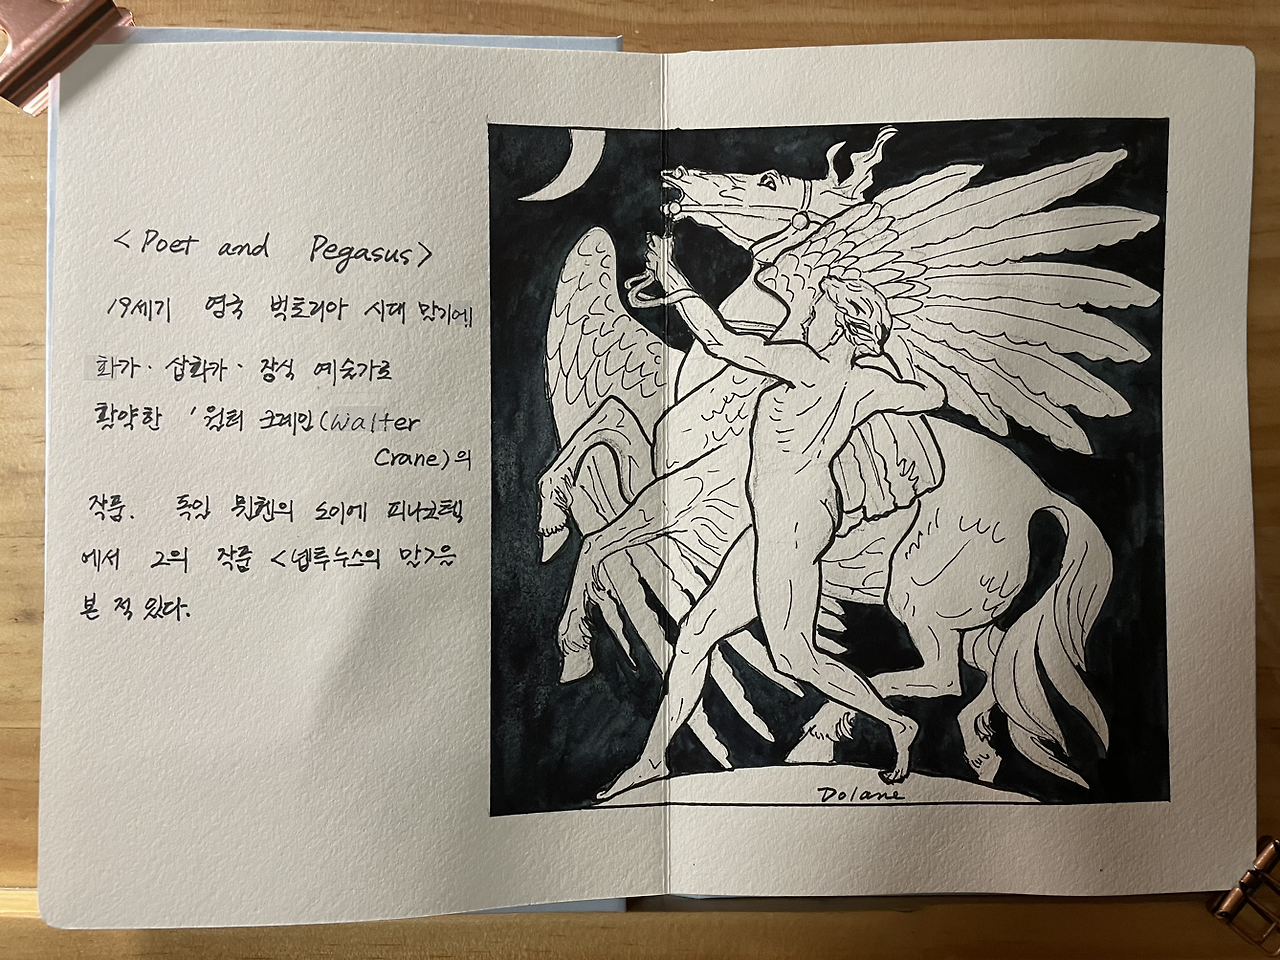 <Poet and Pegasus>
19세기 영국 빅토리아 시대 말기에
화가·삽화가·장식 예술가로
활약한 '월터 크레인(Walter
Crane)의
작품. 독일 뮌헨의 노이에 피나코텍
에서 그의 작품 <넵투누스의 말>을
본 적 있다.
Dolane